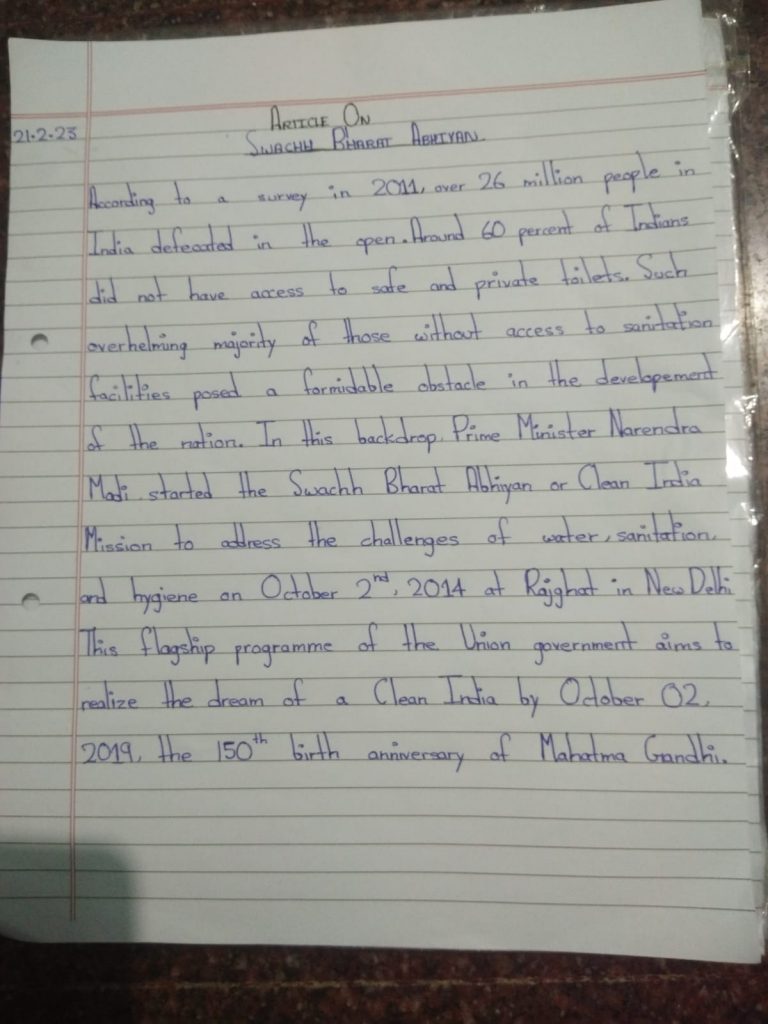 21-2-23
ARTICLE ON
SWACHH BHARAT ABHIYAN
According to a survey in 2011, over 26 million people in
India defecated in the open. Around 60 percent of Indians
did not have access to safe and private toilets. Such
overhelming majority of those without access to sanitation
facilities posed a formidable obstacle in the developement
of the nation. In this backdrop, Prime Minister Narendra
Modi started the Swachh Bharat Abhiyan or Clean India
Mission to address the challenges of water, sanitation,
and hygiene on October 2nd, 2014 at Rajghat in New Delhi
This flagship programme of the Union government aims to
realize the dream of a Clean India by October 02,
2019, the 150th birth anniversary of Mahatma Gandhi.